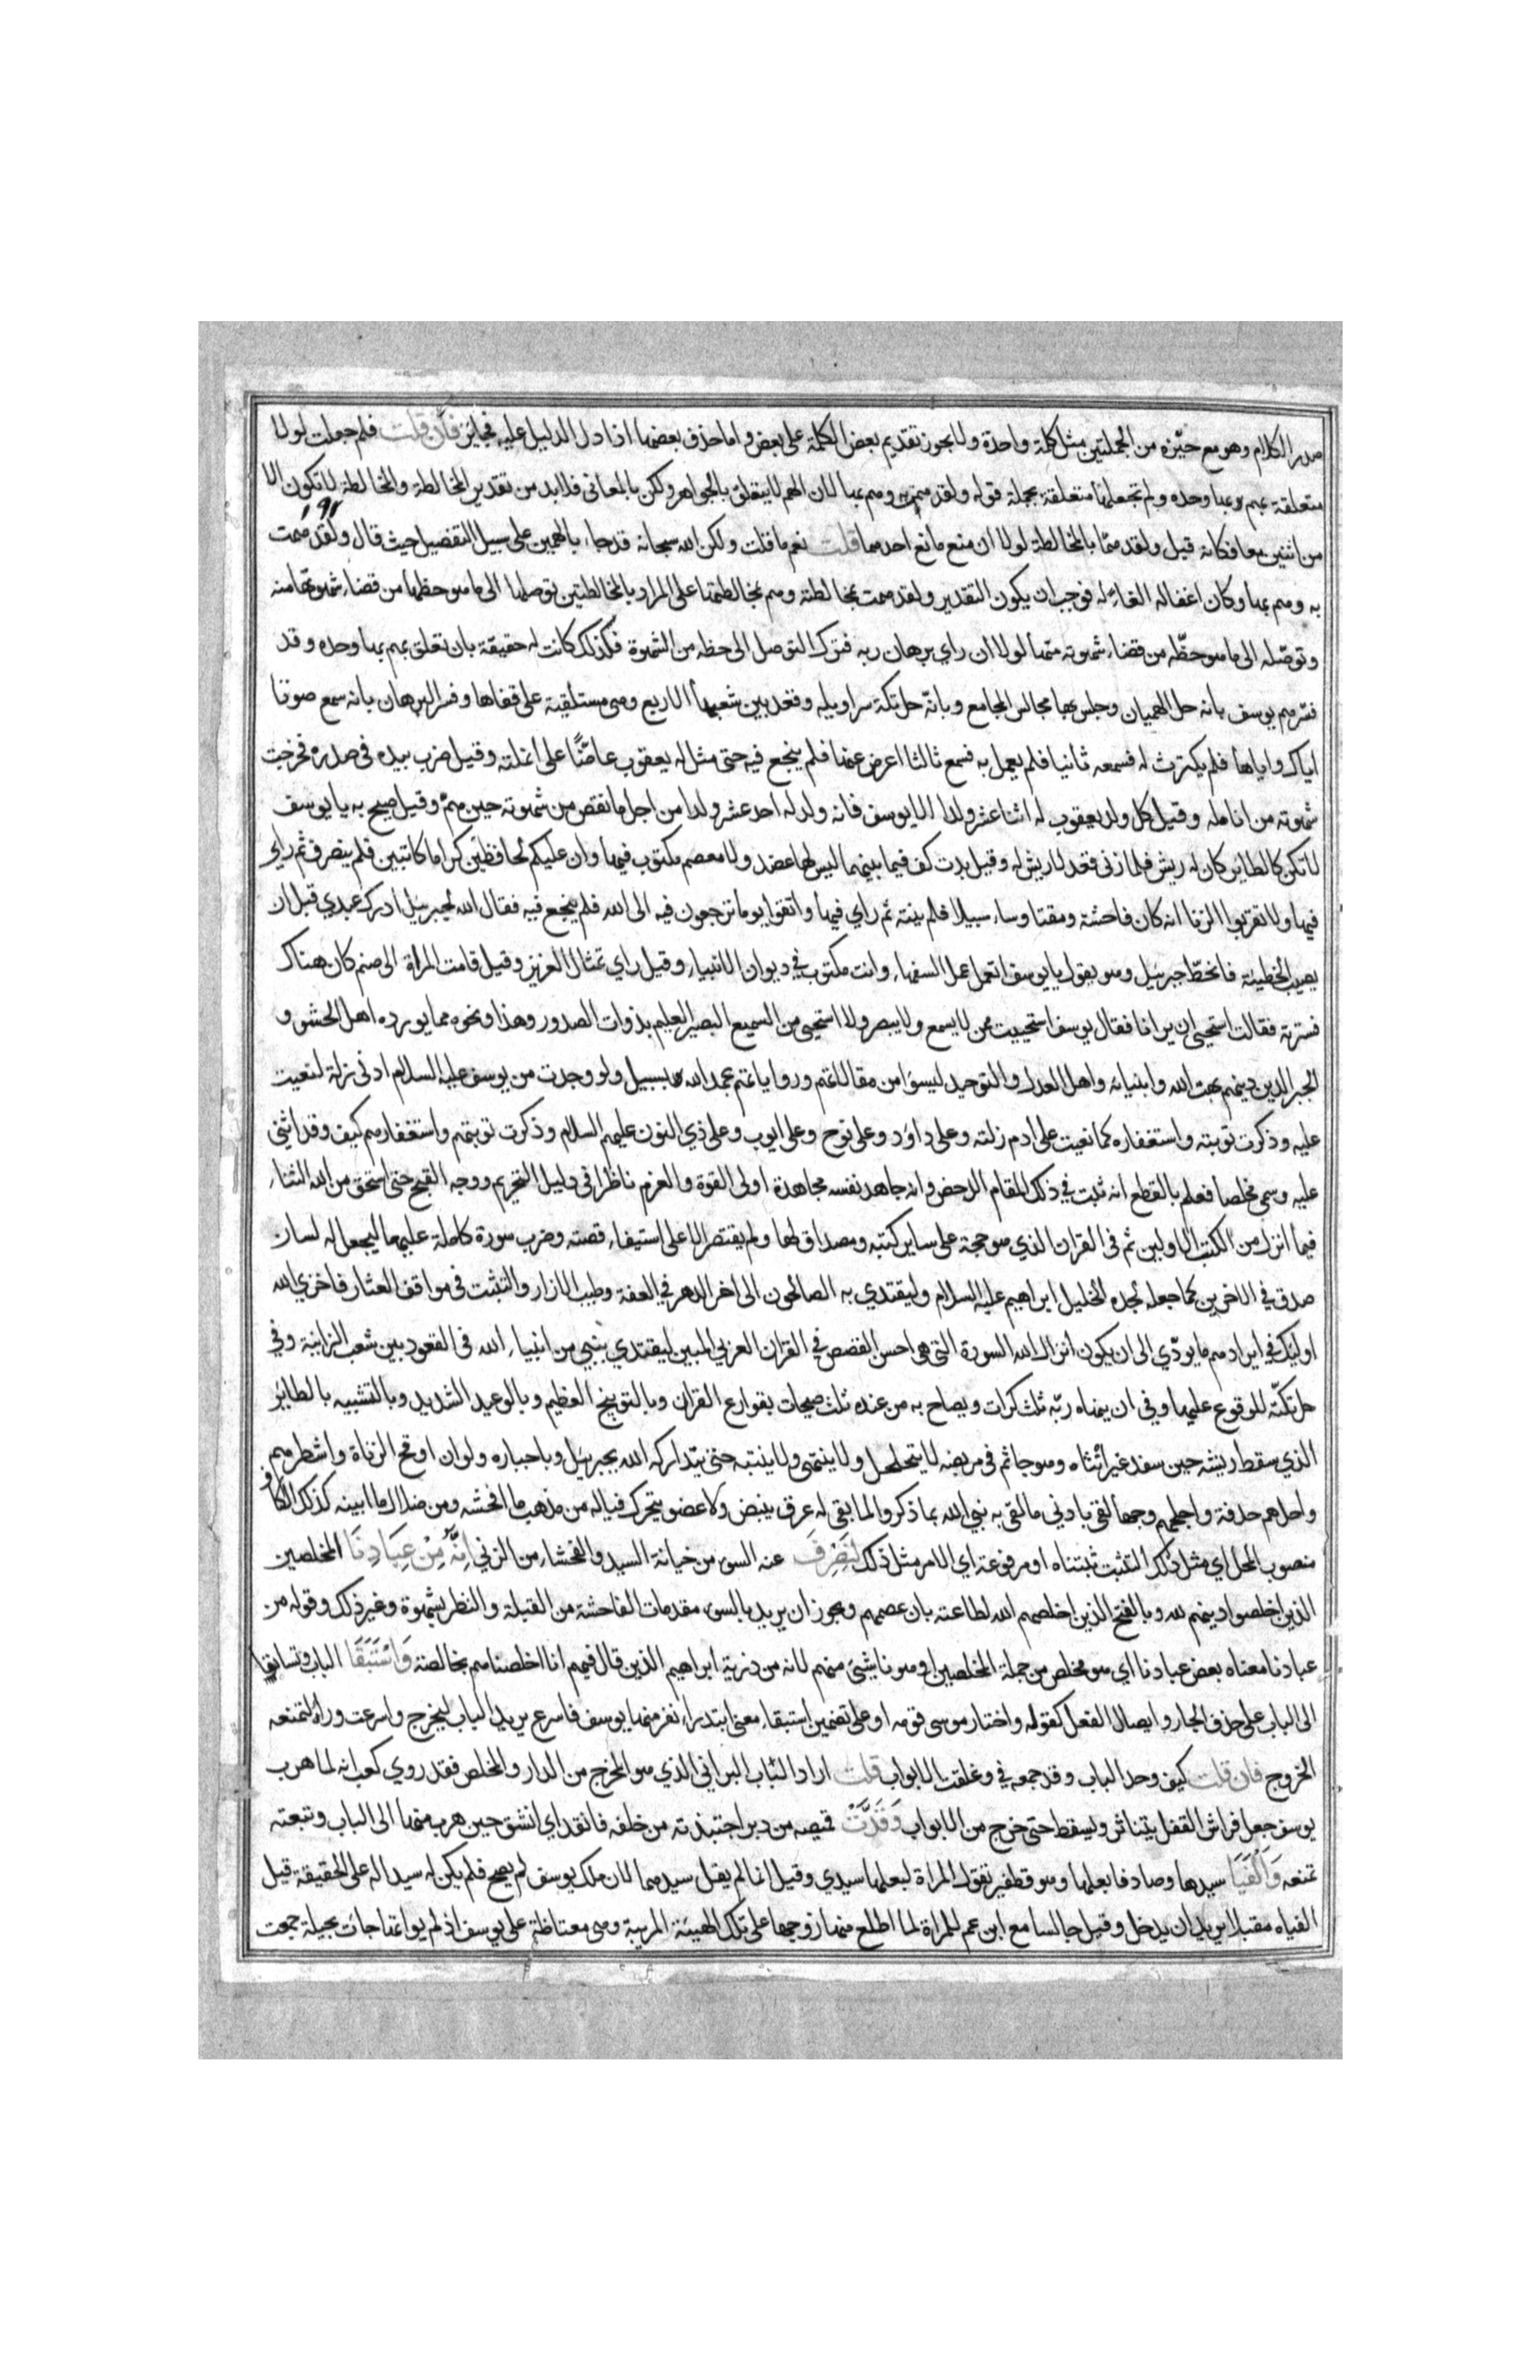 صدر الكلام وهو مع حيّزه من الجملتين مثل كلمة واحدة ولا يجوز تقديم بعض الكلمة على بعض واما حذف بعضها اذا دل الدليل عليه فجايز فان قلت فلم جعلت لولا
متعلقة بهم بها وحده ولم تجعلها متعلقة بجملة قوله ولقد همت به وهم بها لان الهم لا يتعلق بالجواهر ولكن بالمعاني فلا بد من تقدير المخالطة والمخالطة لا تكون الا
من اثنين معا فكانه قيل ولقد هما بالمخالطة لولا ان منع مانع احدهما قلت نعم ما قلت ولكن الله سبحانه قد جاء بالهمين على سبيل التفصيل حيث قال ولقد همت
به وهم بها وكان اغفاله الغاء له فوجب ان يكون التقدير ولقد همت بمخالطته وهم بمخالطتها على المراد بالمخالطتين توصلها الى ما هو حظها من قضاء شهوتها منه
وتوصّله الى ما هو حظّه من قضاء شهوته منها لولا ان راي برهان ربه فترك التوصل الى حظه من الشهوة فلذلك كانت له حقيقة بان تعلق بهم بها وحده وقد
فسّر هم يوسف بانه حل الهميان وجلس بها مجالس المجامع وبانّه حل تكة سراويله وقعد بين شعبها الاربع وهي مستلقية على قفاها وفسر البرهان بانه سمع صوتا
اياك واياها فلم يكترث له فسمعه ثانيا فلم يعمل به فسمع ثالثا اعرض عنها فلم ينجع فيه حتى مثل له يعقوب عاضّا على انملته وقيل ضرب بيده في صدره فخرجت
شهوته من انامله وقيل كل ولد يعقوب له اثنا عشر ولدا الا يوسف فانه ولد له احد عشر ولدا من اجل ما نقص من شهوته حين همّ وقيل صيح به يا يوسف
لا تكن كالطائر كان له ريش فلما زنى قعد لا ريش له وقيل بدت كف فيما بينهما ليس لها عضد ولا معصم مكتوب فيها وان عليكم لحافظين كراما كاتبين فلم ينصرف ثم راي
فيها ولا تقربوا الزنا انه كان فاحشة ومقتا وساء سبيلا فلم ينته ثم راي فيها واتقوا يوما ترجعون فيه الى الله فلم ينجع فيه فقال الله لجبرئيل ادرك عبدي قبل ان
يصيب الخطيئة فانحطّ جبرئيل وهو يقول يا يوسف اتعمل عمل السفهاء وانت مكتوب في ديوان الانبياء وقيل راي تمثال العزيز وقيل قامت المراة الى صنم كان هناك
فسترته فقالت استحيي ان يرانا فقال يوسف استحييت ممن لا يسمع ولا يبصر ولا استحيي من السميع البصير العليم بذوات الصدور وهذا ونحوه مما يورده اهل الحشو و
الجبر الذين دينهم بهت الله وانبيائه واهل العدل والتوحيد ليسوا من مقالاتهم ورواياتهم بحمد الله بسبيل ولو وجدت من يوسف عليه السلام ادنى زلة لنعيت
عليه وذكرت توبته واستغفاره كما نعيت على ادم زلته وعلى داود وعلى نوح وعلى ايوب وعلى ذي النون عليهم السلام وذكرت توبتهم واستغفارهم كيف وقد اثني
عليه وسمي مخلصا فعلم بالقطع انه ثبت في ذلك المقام الدحض وانه جاهد نفسه مجاهدة اولى القوة والعزم ناظرا في دليل التحريم ووجه القبح حتى استحق من الله الثناء
فيما انزل من الكتب الاولين ثم في القران الذي هو حجة على ساير كتبه ومصداق لها ولم يقتصر الا على استيفاء قصته وضرب سورة كاملة عليها ليجعل له لسان
صدق في الاخرين كما جعله لجده الخليل ابراهيم عليه السلام وليقتدي به الصالحون الى اخر الدهر في العفة وطيب الازار والتثبت في مواقف العثار فاخزى الله
اوليك في ايرادهم ما يودّي الى ان يكون انزال الله السورة التي هي احسن القصص في القران العربي المبين ليقتدي بنبي من انبياء الله في القعود بين شعب الزانية وفي
حل تكّته للوقوع عليها وفي ان ينهاه ربّه ثلث كرات ويصاح به من عنده ثلث صيحات بقوارع القران وبالتوبيخ العظيم وبالوعيد الشديد وبالتشبيه بالطائر
الذي سقط ريشه حين سفد غير انثاه وهو جاثم في مربضه لا يتحلحل ولا ينتهى ولا ينتبه حتى يتداركه الله بجبرئيل وباجباره ولو ان اوقح الزناة واشطرهم
واحدهم حدقة واجلحهم وجها لقى بادنى ما لقى به نبي الله بما ذكروا لما بقي له عرق ينبض ولا عضو يتحرك فياله من مذهب ما افحشه ومن ضلال ما ابينه كذلك الكاف
منصوب المحل اي مثل ذلك التثبت ثبتناه او مرفوعة اي الامر مثل ذلك لِنَصْرِفَ عنه السوء من خيانة السيد والفحشاء من الزنى اِنَّهُ مِنْ عِبَادِنَا المخلصين
الذين اخلصوا دينهم لله وبالفتح الذين اخلصهم الله لطاعته بان عصمهم ويجوز ان يريد بالسوء مقدمات الفاحشة من القبلة والنظر بشهوة وغير ذلك وقوله من
عبادنا معناه بعض عبادنا اي هو مخلص من جملة المخلصين او هو ناشئ منهم لانه من ذرية ابراهيم الذين قال فيهم انا اخلصناهم بخالصة وَاسْتَبَقَا الباب وتسابقا
الى الباب على حذف الجار وايصال الفعل كقوله واختار موسى قومه او على تضمين استبقاء معنى ابتدرا نفر منها يوسف فاسرع يريد الباب ليخرج واسرعت وراه لتمنعه
الخروج فان قلت كيف وحد الباب وقد جمعه في وغلقت الابواب قلت اراد الباب البراني الذي هو المخرج من الدار والمخلص فقد روي كعب انه لما هرب
يوسف جعل فراش القفل يتناثر ويسقط حتى خرج من الابواب وَقَدَّتْ قميصه من دبر اجتبذته من خلفه فانقد اي انشق حين هرب منها الى الباب وتبعته
تمنعه وَاَلْفَيَا سيدها وصادفا بعلها وهو قطفير تقول المراة لبعلها سيدي وقيل انما لم يقل سيدهما لان ملك يوسف لم يصح فلم يكن له سيدا له على الحقيقة قيل
الفياه مقبلا يريد ان يدخل وقيل جالسا مع ابن عم للمراة لما اطلع منها زوجها على تلك الهيئة المريبة وهي مغتاظة على يوسف اذ لم يواتها جات بحيلة جمعت